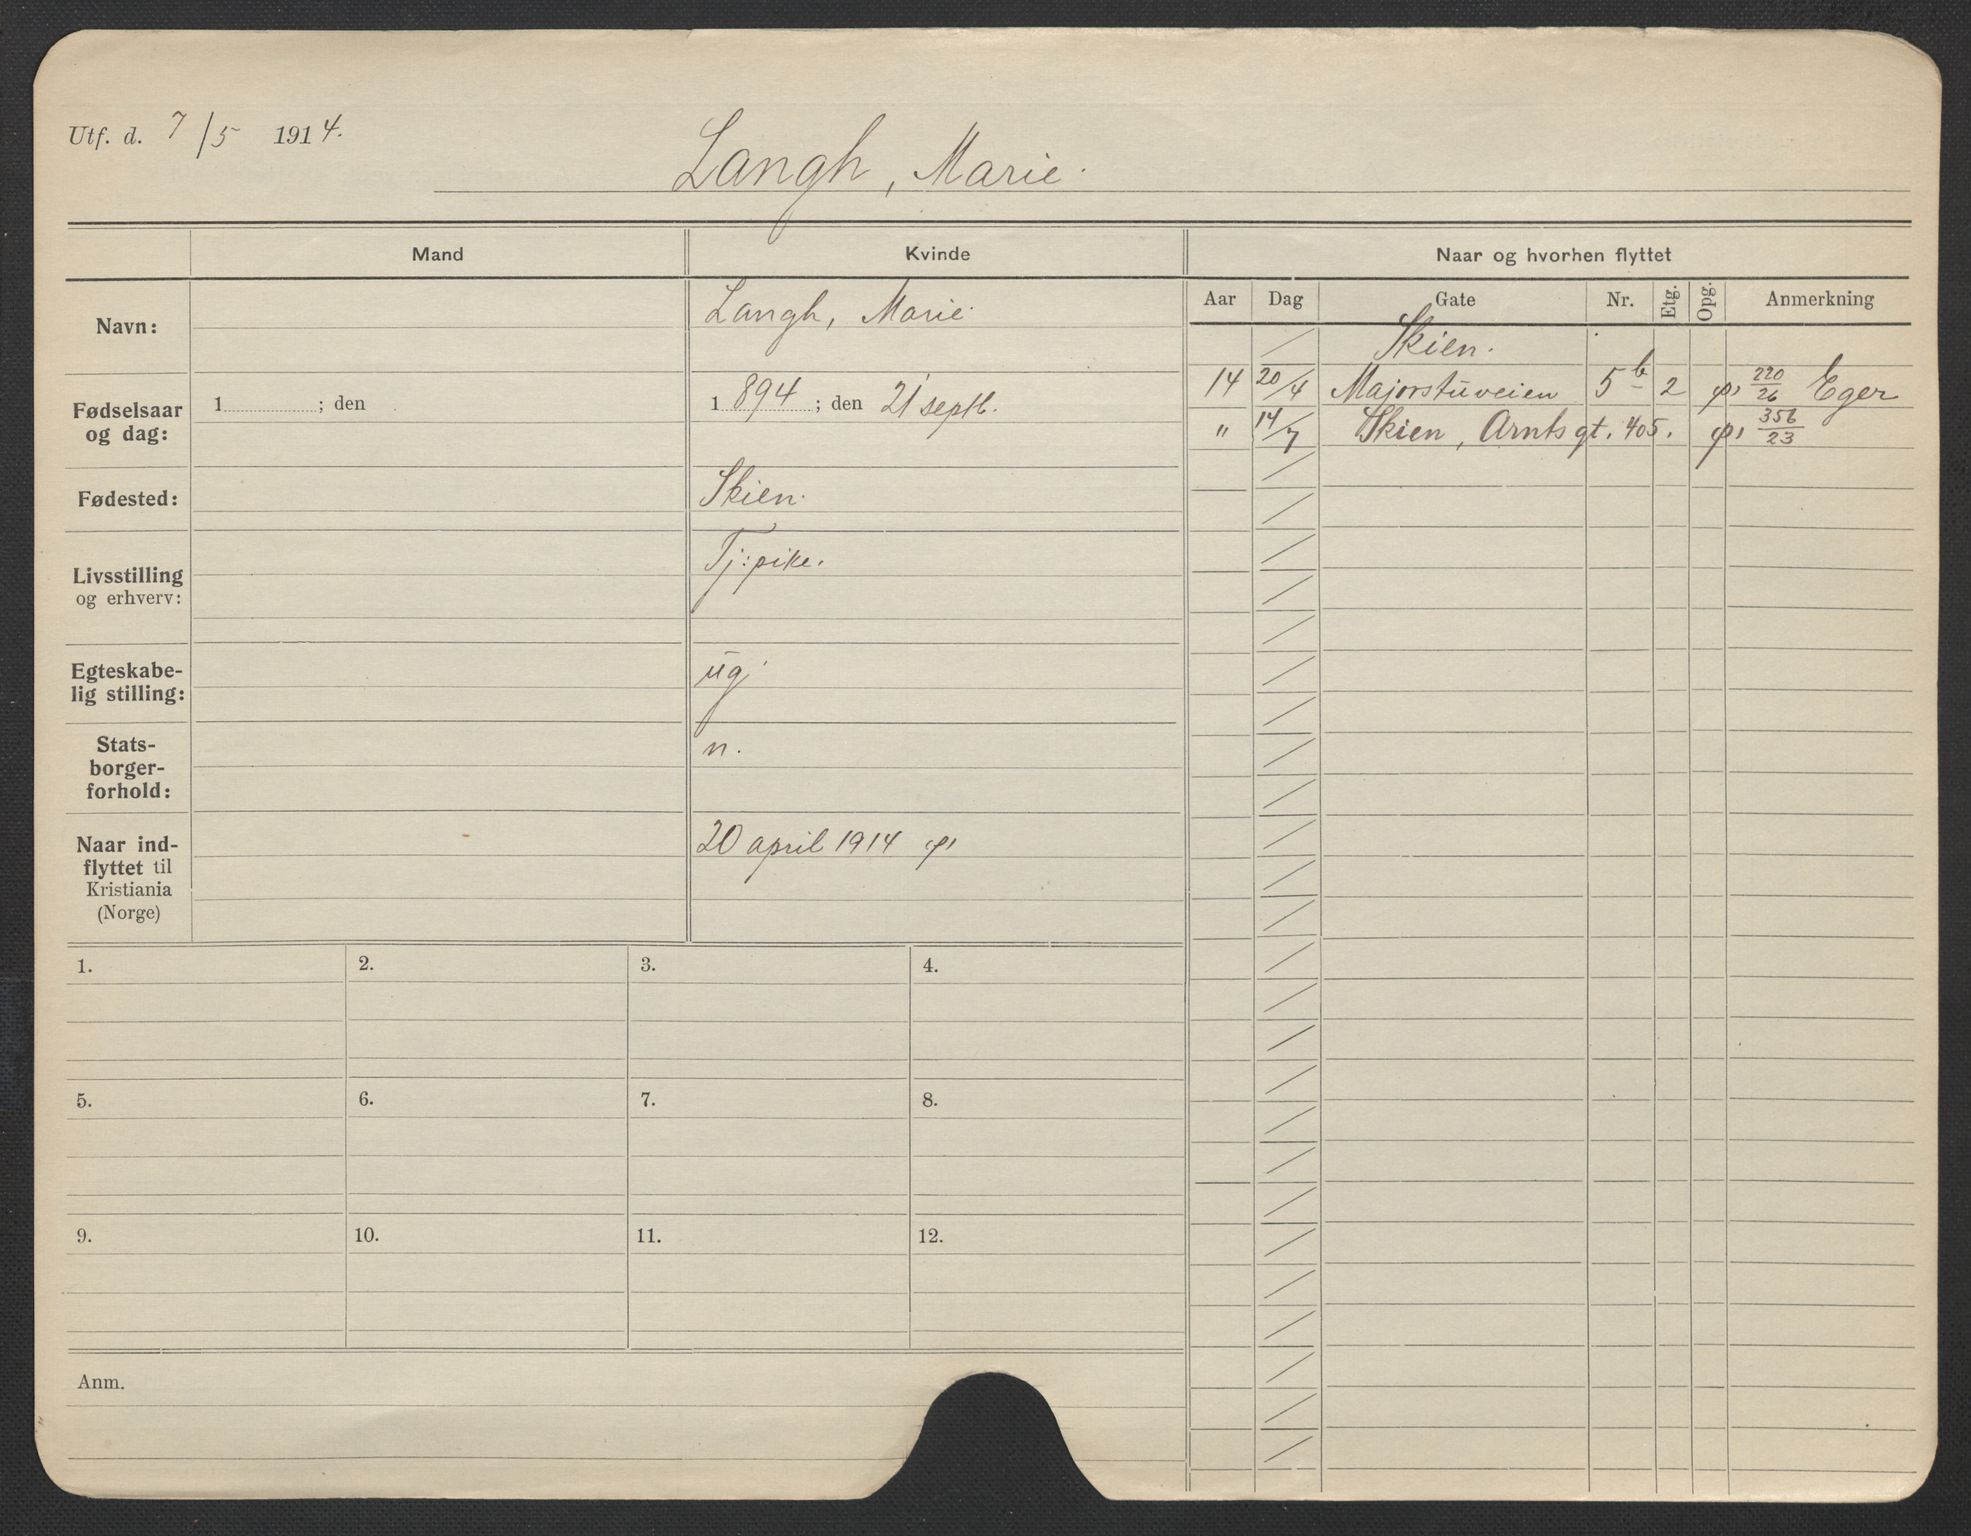 Utf. d. 7/5 1914.
Langh, Marie.
Mand
Kvinde
Naar og hvorhen flyttet
Navn:
Langh, Marie.
Fødselsaar og dag:
1 ; den
1 894 ; den 21 septb.
Fødested:
Skien.
Livsstilling og erhverv:
Tj:pike.
Egteskabe-
lig stilling:
ug.
Stats-
borger-
forhold:
n.
Naar ind-
flyttet til
Kristiania
(Norge)
20 april 1914
Aar Dag Gate Nr. Etg. Opg. Anmerkning
Skien.
14 20/4 Majorstuveien 5b 2 220/26 Eger
" 14/7 Skien, Arntsgt. 405. 356/23
1. 2. 3. 4.
5. 6. 7. 8.
9. 10. 11. 12.
Anm.